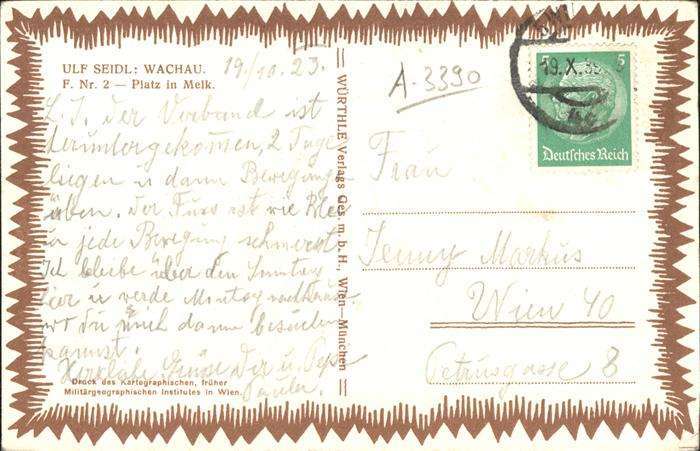 ULF SEIDL: WACHAU.
F. Nr. 2 — Platz in Melk.
19/10. 23.
L. J. der Verband ist
heruntergekommen, 2 Tage
liegen u dann Bewegungen
üben. Der Fuss ist wie Blei
u jede Bewegung schmerzt
Ich bleibe über den Sonntag
hier u werde Montag
wo du mich dann besuchen
kannst.
Herzliche Grüsse Dir u.
Druck des Kartographischen, früher
Militärgeographischen Institutes in Wien.
WÜRTHLE Verlags Ges. m. b. H., Wien—München
A-3390
19.X.
5
5
Deutsches Reich
Frau
Jenny Markus
Wien 40
Petrusgasse 8